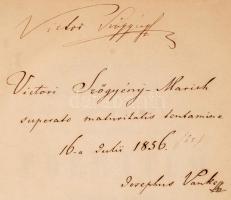 Victor Szögyény
Victori Szőgyény-Marich
superato maturitatis tentamine
16-a Julii 1856.
Josephus Vanke